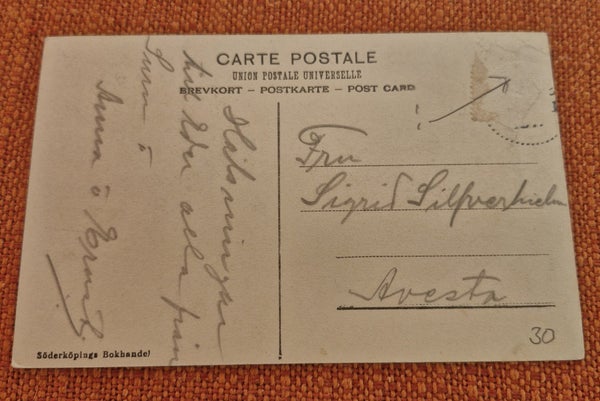 CARTE POSTALE
UNION POSTALE UNIVERSELLE
BREVKORT – POSTKARTE – POST CARD
Hälsningar
till Eder alla från
Anna o Ernst.
Fru
Sigrid Silfverhielm
Avesta
30
Söderköpings Bokhandel